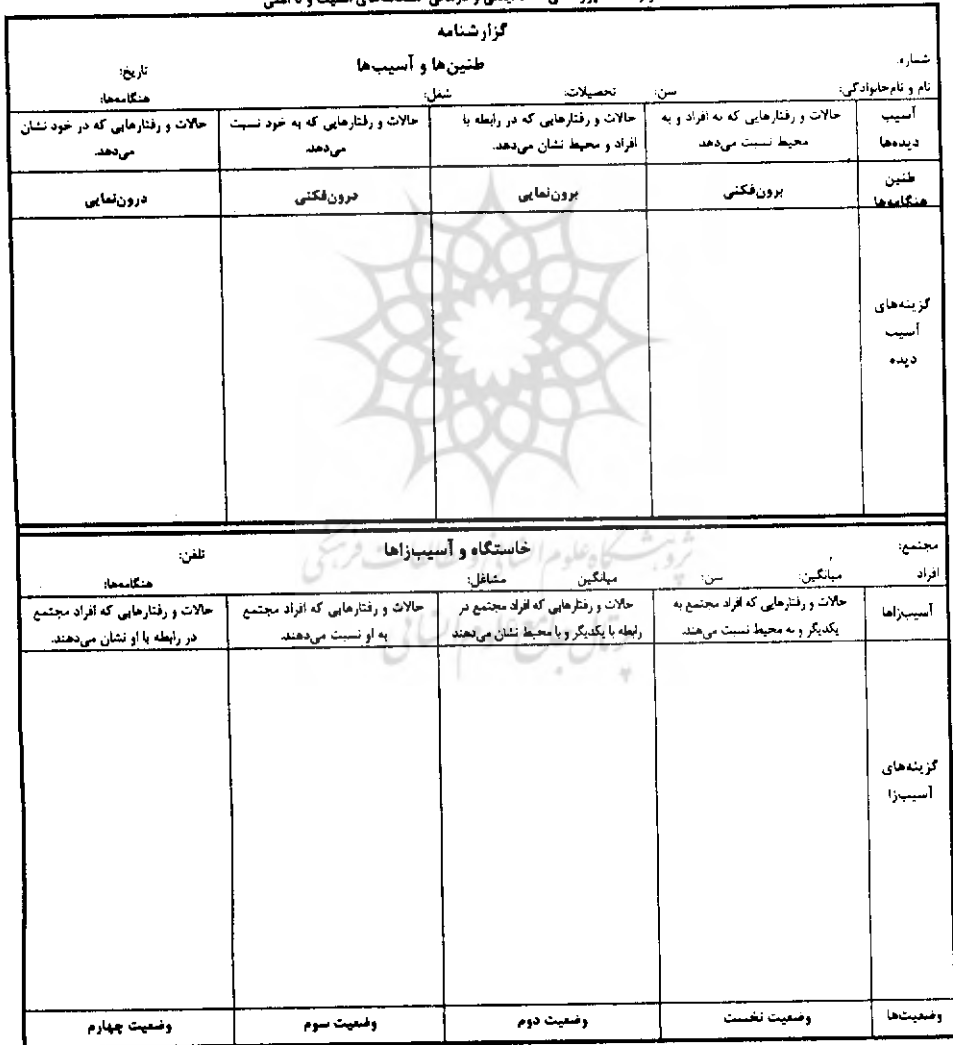 گزارشنامه
طنین‌ها و آسیب‌ها
شماره:
تاریخ:
نام و نام‌خانوادگی: سن: تحصیلات: شغل: هنگامه‌ها:
آسیب دیده‌ها
حالات و رفتارهایی که به افراد و به محیط نسبت می‌دهد
حالات و رفتارهایی که در رابطه با افراد و محیط نشان می‌دهد.
حالات و رفتارهایی که به خود نسبت می‌دهد.
حالات و رفتارهایی که در خود نشان می‌دهد.
طنین هنگامه‌ها
برون‌فکنی
برون‌نمایی
درون‌فکنی
درون‌نمایی
گزینه‌های
آسیب
دیده
خاستگاه و آسیب‌زاها
مجتمع:
تلفن:
افراد میانگین: سن: میانگین مشاغل: هنگامه‌ها:
آسیب‌زاها
حالات و رفتارهایی که افراد مجتمع به یکدیگر و به محیط نسبت می‌هند.
حالات و رفتارهایی که افراد مجتمع در رابطه با یکدیگر و با محیط نشان می‌دهند
حالات و رفتارهایی که افراد مجتمع به او نسبت می‌دهند.
حالات و رفتارهایی که افراد مجتمع در رابطه با او نشان می‌دهند.
پژوهشگاه علوم انسانی و مطالعات فرهنگی
پرتال جامع علوم انسانی
گزینه‌های
آسیب‌زا
وضعیت‌ها
وضعیت نخست
وضعیت دوم
وضعیت سوم
وضعیت چهارم